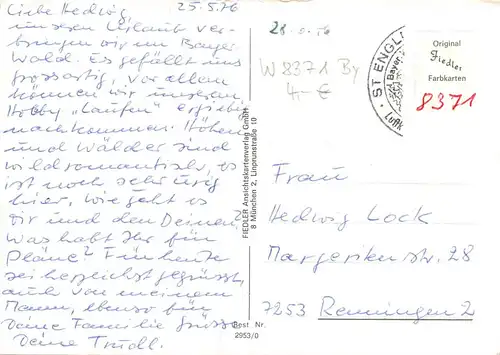 25.5.76
Liebe Hedwig,
unseren Urlaub ver-
bringen wir im Bayer.
Wald. Es gefällt uns
grossartig, vor allem
können wir unserem
Hobby "Laufen" ergiebig
nachkommen. Höhen
und Wälder sind
wildromantisch, es
ist noch sehr urig
hier, wie geht es
Dir und den Deinen?
Was habt Ihr für
Pläne? Für heute
sei herzlichst gegrüsst,
auch von meinem
Mann, ebenso für
Deine Familie Grüsse
Deine Trudl.
FIEDLER Ansichtskartenverlag GmbH
8 München 2, Linprunstraße 10
Best Nr.
2953/0
W 8371 By
4.- €
ST ENGL
Bayer.
Luftk
Original
Fiedler
Farbkarten
8371
Frau
Hedwig Lock
Margeriten str. 28
7253 Renningen 2